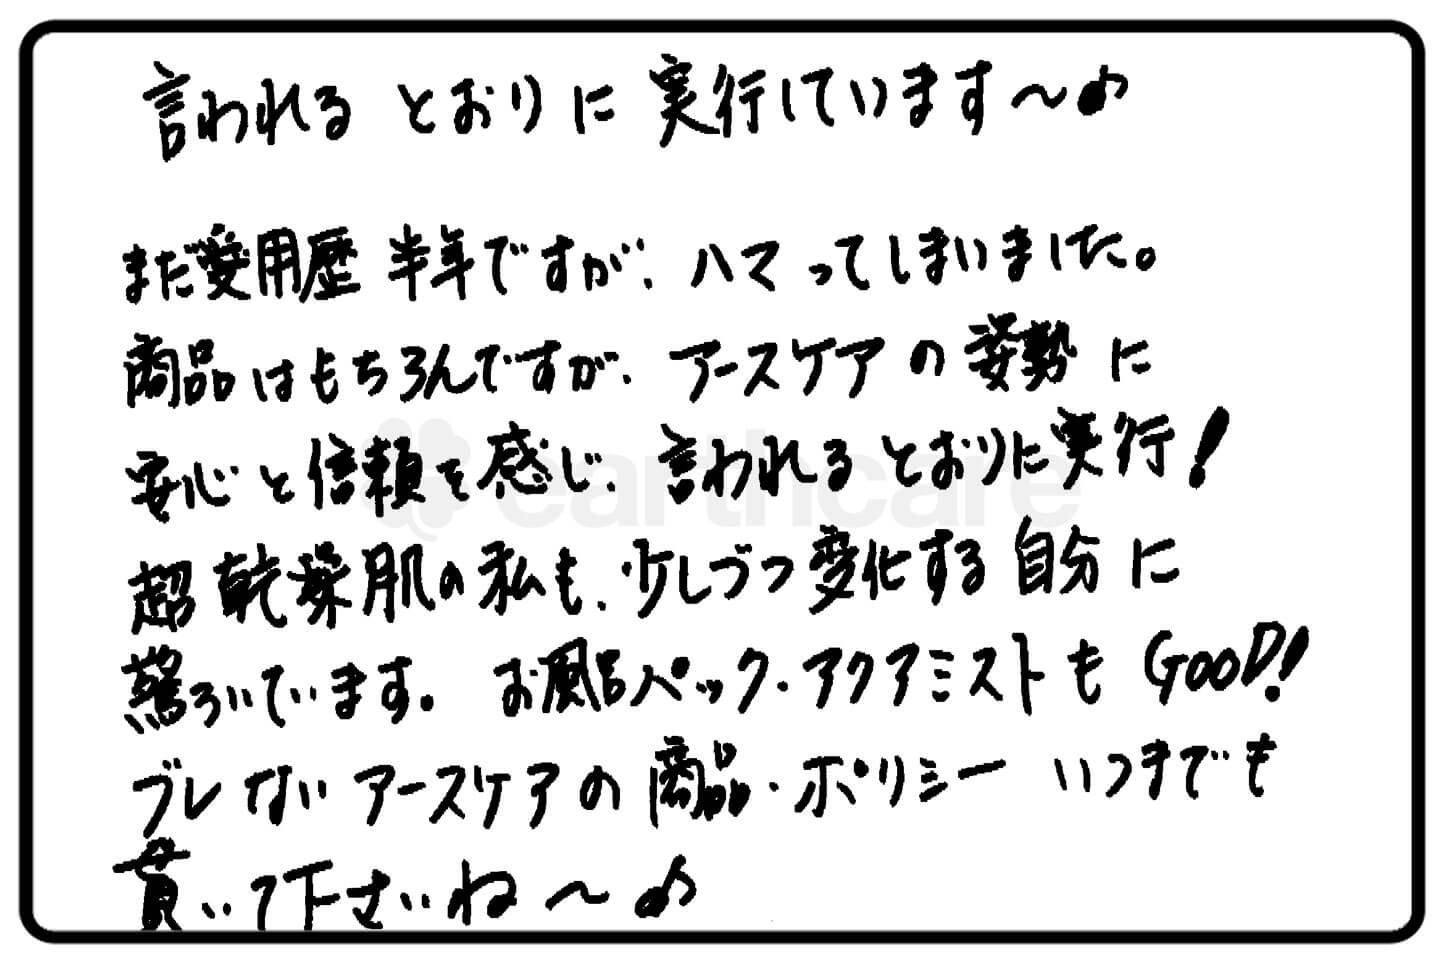 言われるとおりに実行しています〜♪
まだ愛用歴半年ですが、ハマってしまいました。
商品はもちろんですが、アースケアの姿勢に
安心と信頼を感じ、言われるとおりに実行!
超乾燥肌の私も、少しづつ変化する自分に
驚ろいています。お風呂パック・アクアミストもGOOD!!
ブレないアースケアの商品・ポリシーいつまでも
貫いて下さいね〜♪
earthcare